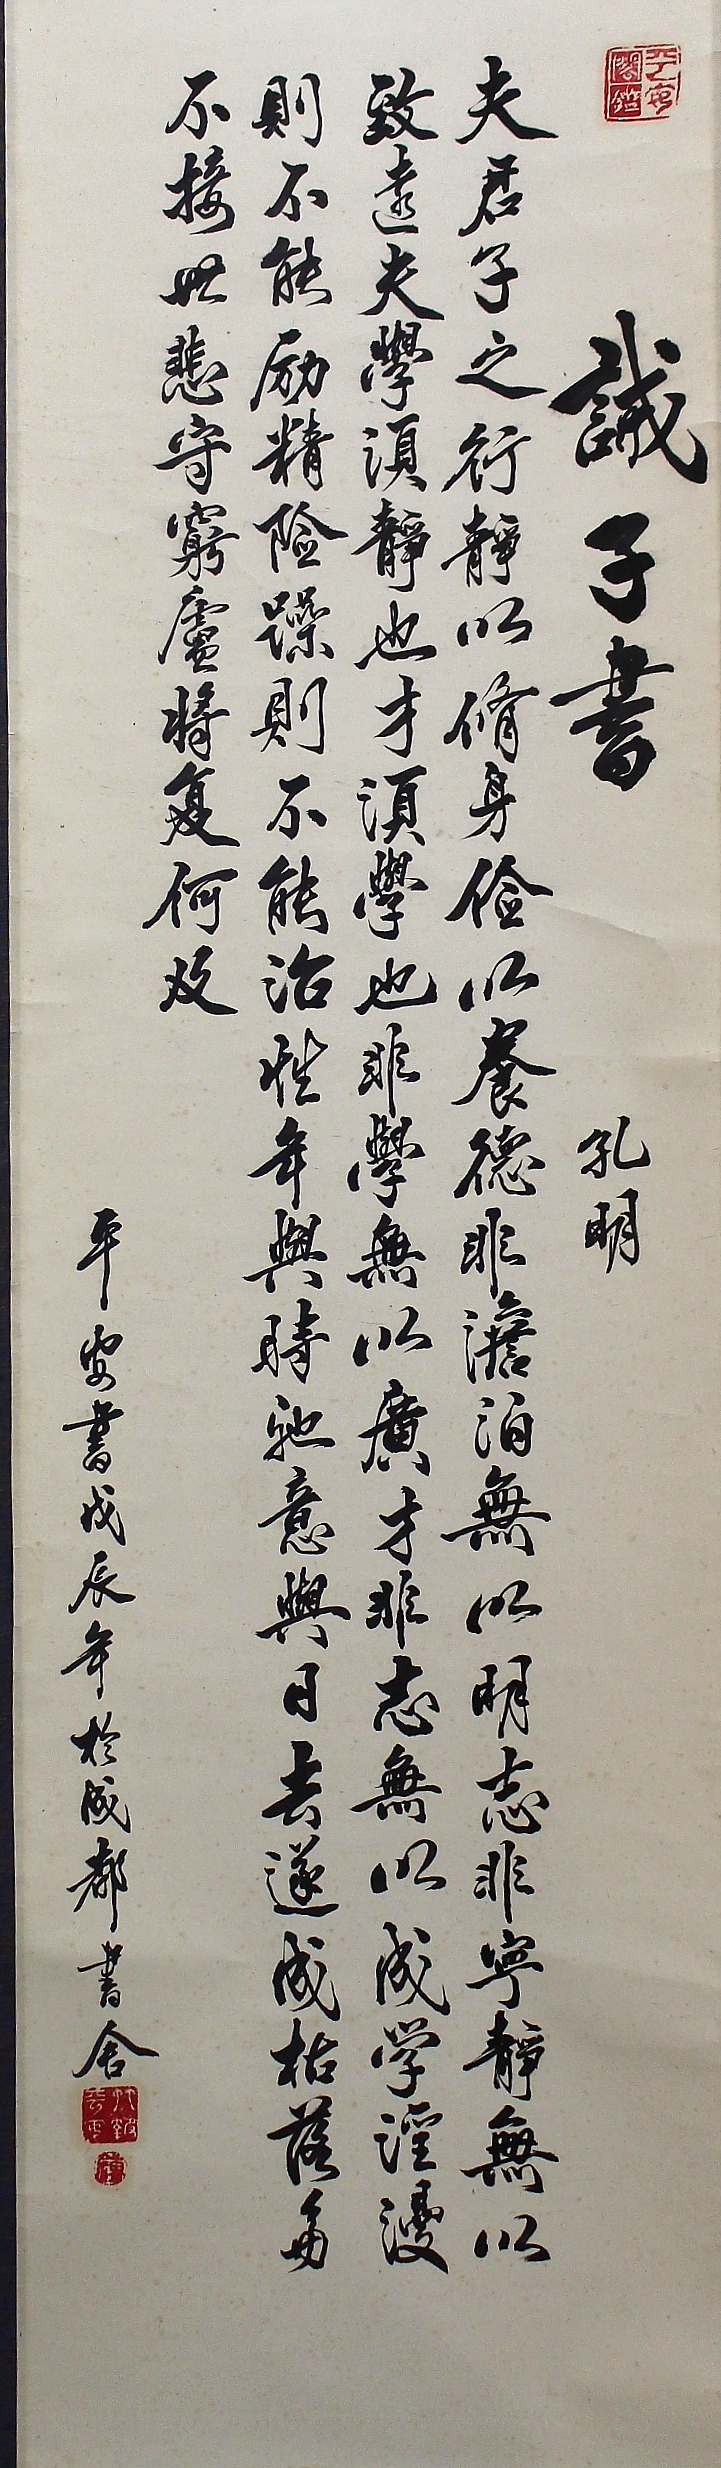 誡子書
孔明
夫君子之行靜以脩身俭以養德非澹泊無以明志非寧靜無以
致遠夫學須靜也才須學也非學無以廣才非志無以成学淫漫
則不能励精险躁則不能治性年與時馳意與日去遂成枯落多
不接世悲守窮廬將复何及
平安書戊辰年於成都書舍